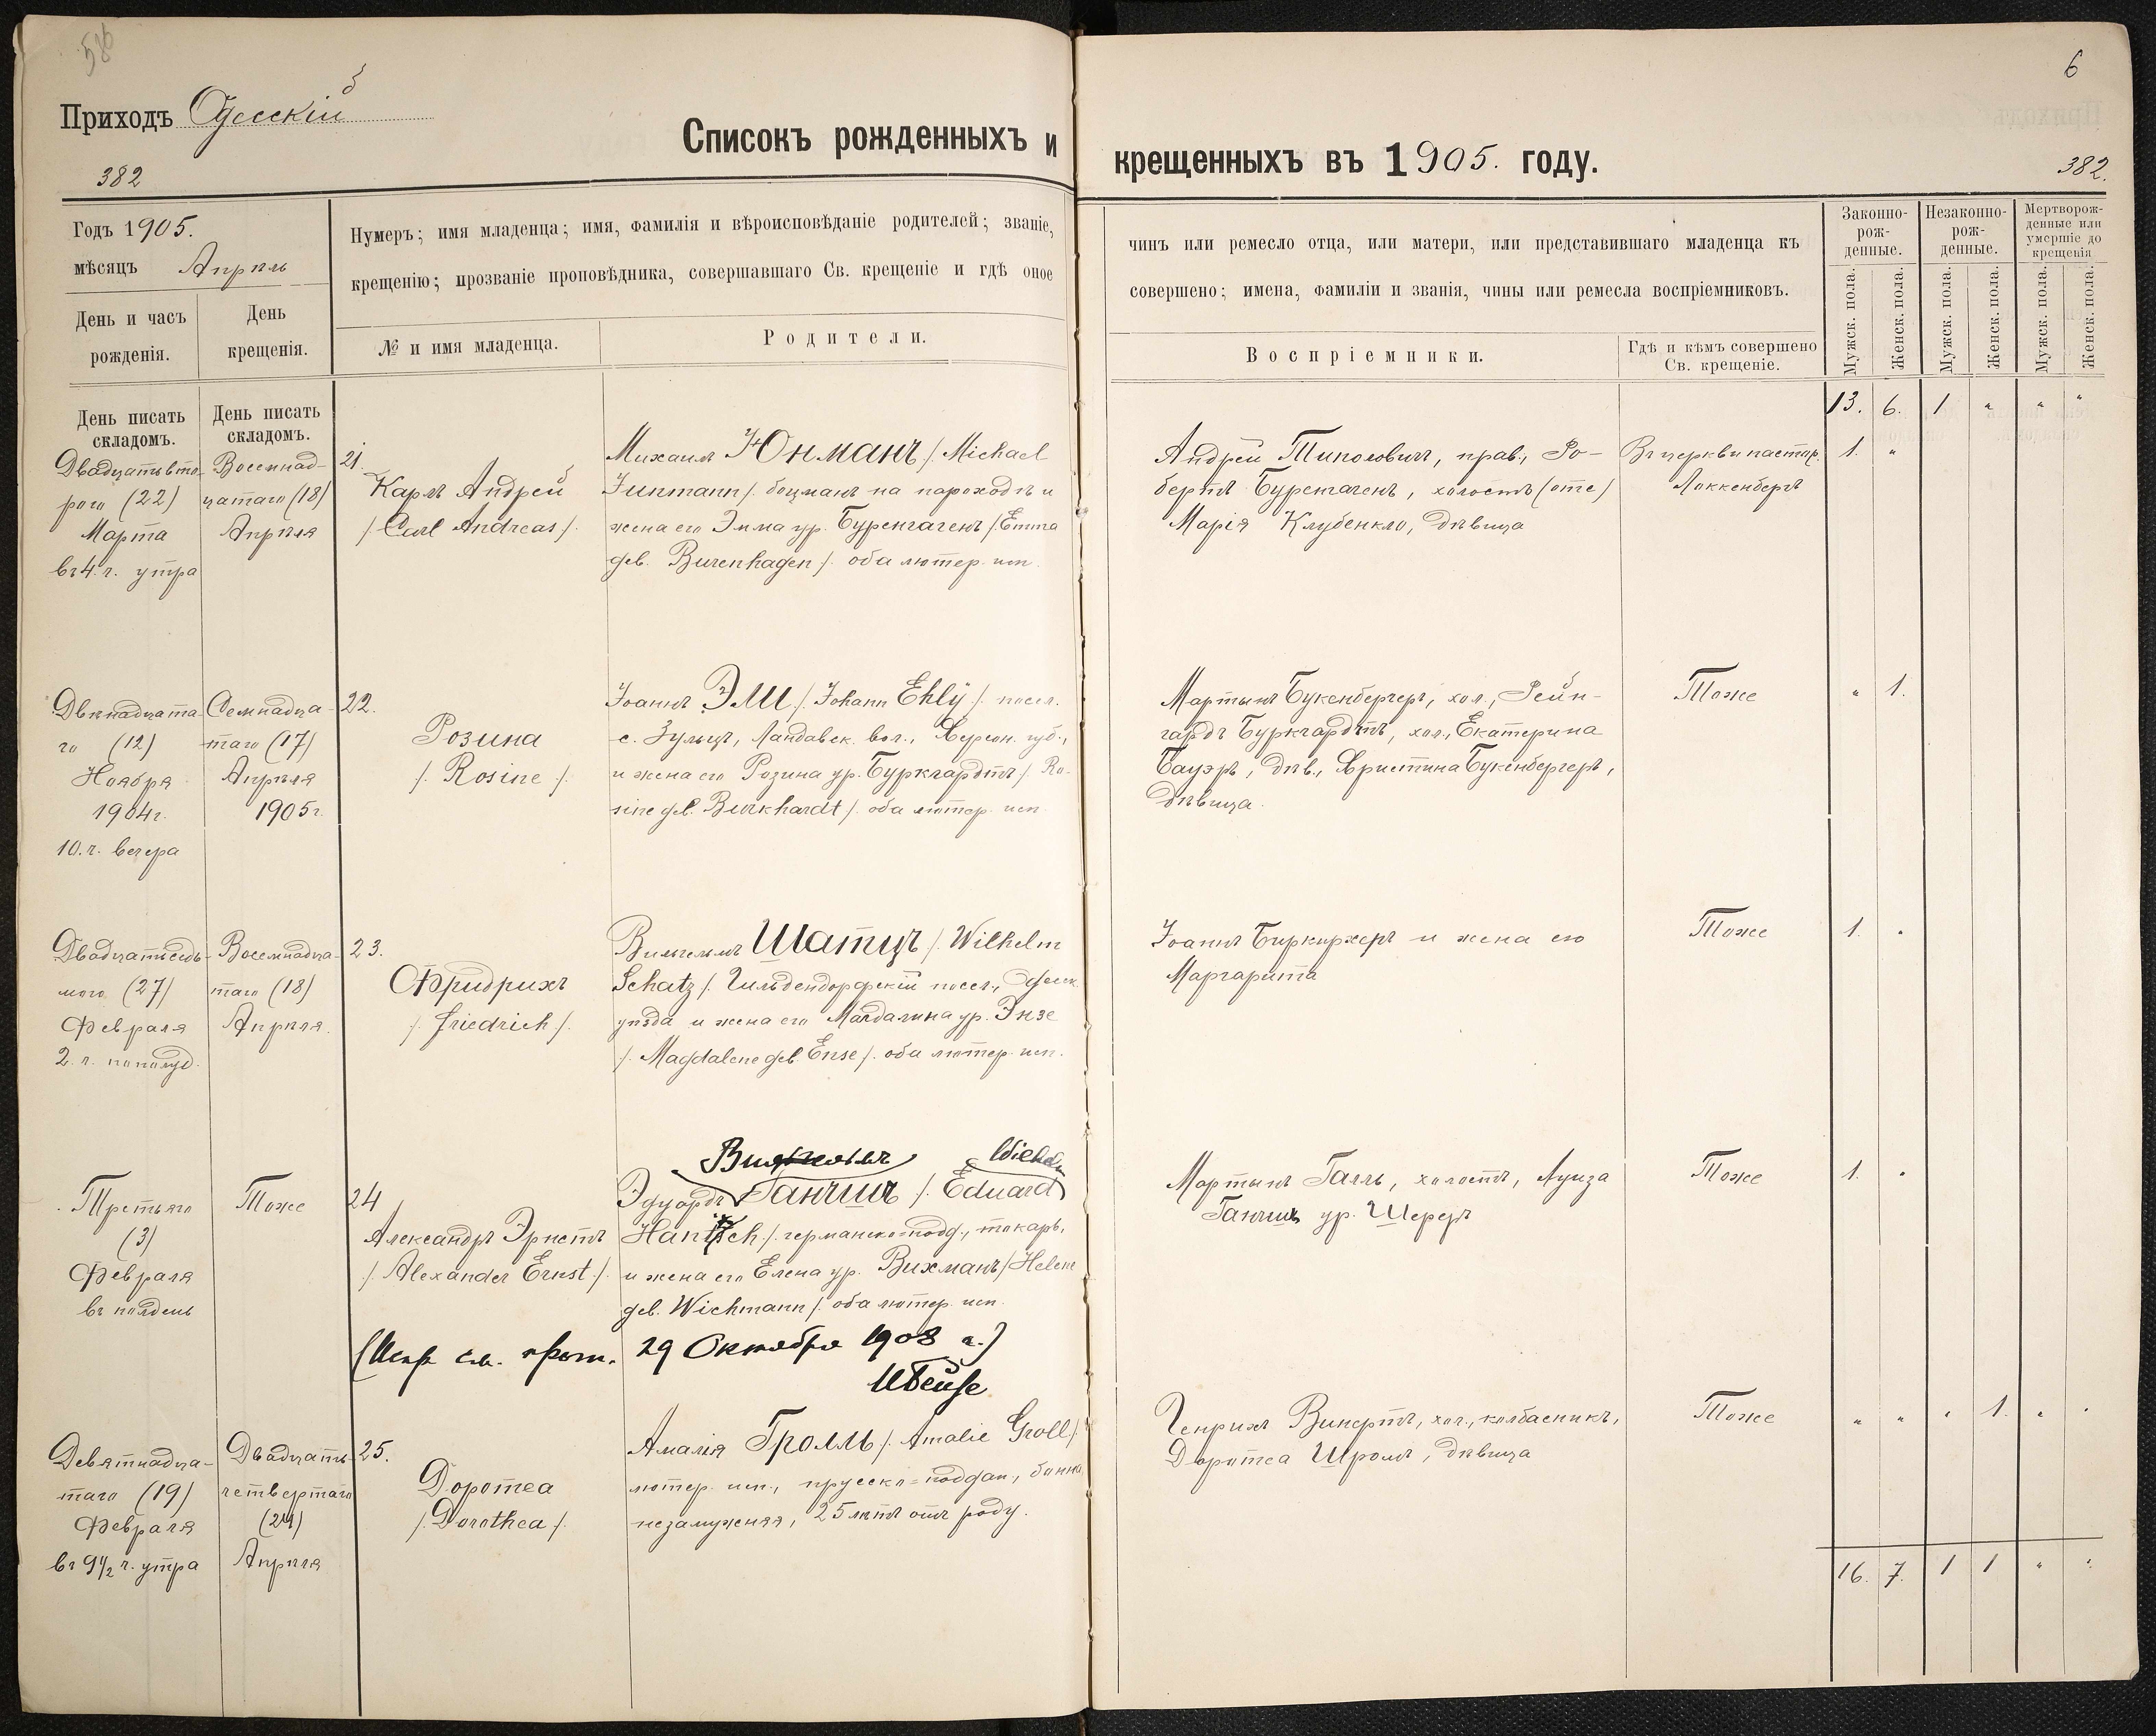 586
6
Приходъ Одесскій
Списокъ рожденныхъ и крещенныхъ въ 1905. году.
382
382.
Годъ 1905.
мѣсяцъ Апрѣль
День и часъ рожденія.
День крещенія.
Нумеръ; имя младенца; имя, фамилія и вѣроисповѣданіе родителей; званіе,
крещенію; прозваніе проповѣдника, совершавшаго Св. крещеніе и гдѣ оное
№ и имя младенца.
Родители.
чинъ или ремесло отца, или матери, или представившаго младенца къ
совершено; имена, фамиліи и званія, чины или ремесла воспріемниковъ.
Воспріемники.
Гдѣ и кѣмъ совершено
Св. крещеніе.
Законно-
рож-
денные.
Незаконно-
рож-
денные.
Мертворож-
денные или
умершіе до
крещенія
Мужск. пола.
Женск. пола.
Мужск. пола.
Женск. пола.
Мужск. пола.
Женск. пола.
День писать
складомъ.
День писать
складомъ.
13. 6. 1 " " "
Двадцатьвто-
раго (22)
Марта
въ 4. ч. утра
Восемнад-
цатаго (18)
Апрѣля
21.
Карлъ Андрей
/. Carl Andreas /.
Михаилъ Юнманъ /. Michael
Junmann /. боцманъ на пароходѣ и
жена его Эмма ур. Буренгагенъ /. Emma
geb. Burenhagen /. оба лютер. исп.
Андрей Типоловичъ, прав., Ро-
бертъ Буренгагенъ, холостъ
Марія Клубенкло, дѣвица
Въ церкви пастор.
Локкенбергъ
1. "
Двѣнадцата-
го (12)
Ноября
1904г.
10. ч. вечера
Семнадца-
таго (17)
Апрѣля
1905г.
22.
Розина
/. Rosine /.
Іоаннъ Эли /. Johann Ehly /. посел.
с. Зульцъ, Ландавск. вол., Херсон. губ.,
и жена его Розина ур. Буркгардтъ /. Ro-
sine geb. Burkhardt /. оба лютер. исп.
Мартынъ Букенбергеръ, хол., Рейн-
гардъ Буркгардтъ, хол., Екатерина
Бауэръ, дѣв., Христина Букенбергеръ,
дѣвица.
Тоже
" 1.
Двадцатьседь-
мого (27)
Февраля
2. ч. пополуд.
Восемнадца-
таго (18)
Апрѣля.
23.
Фридрихъ
/. Friedrich /.
Вильгельмъ Шатцъ /. Wilhelm
Schatz /. Гильдендорфскій посел., Одесск.
уѣзда и жена его Магдалина ур. Энзе
/. Magdalene geb. Ense /. оба лютер. исп.
Іоаннъ Биркирхеръ и жена его
Маргарита
Тоже
1. "
Третьяго
(3)
Февраля
въ полдень
Тоже
24
Александръ Эрнстъ
/. Alexander Ernst /.
Эдуардъ Ганчшъ /. Eduard
Hantsch /. германско-подд., токарь,
и жена его Елена ур. Вихманъ /. Helene
geb. Wichmann /. оба лютер. исп.
29 Октября 1908 г.)
Мартынъ Галль, холостъ, Луиза
Ганчшъ ур. Шерецъ
Тоже
1. "
Девятнадца-
таго (19)
Февраля
въ 9 1/2 ч. утра
Двадцать
четвертаго
(24)
Апрѣля
25.
Доротеа
/. Dorothea /.
Амалія Гролль /. Amalie Groll /.
лютер. исп., прусско-поддан., бонна
незамужняя, 25 лѣтъ отъ роду.
Генрихъ Винертъ, хол., колбасникъ,
Доротеа Шромъ, дѣвица
Тоже
" " " 1. " "
16. 7. 1 1 " "